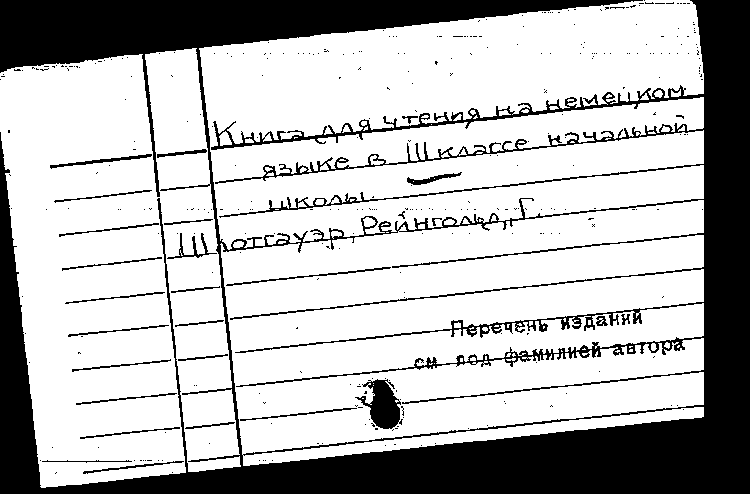 Книга для чтения на немецком
языке в III классе начальной
школы.
Шлотгауэр, Рейнгольд, Г.
Перечень изданий
см под фамилией автора